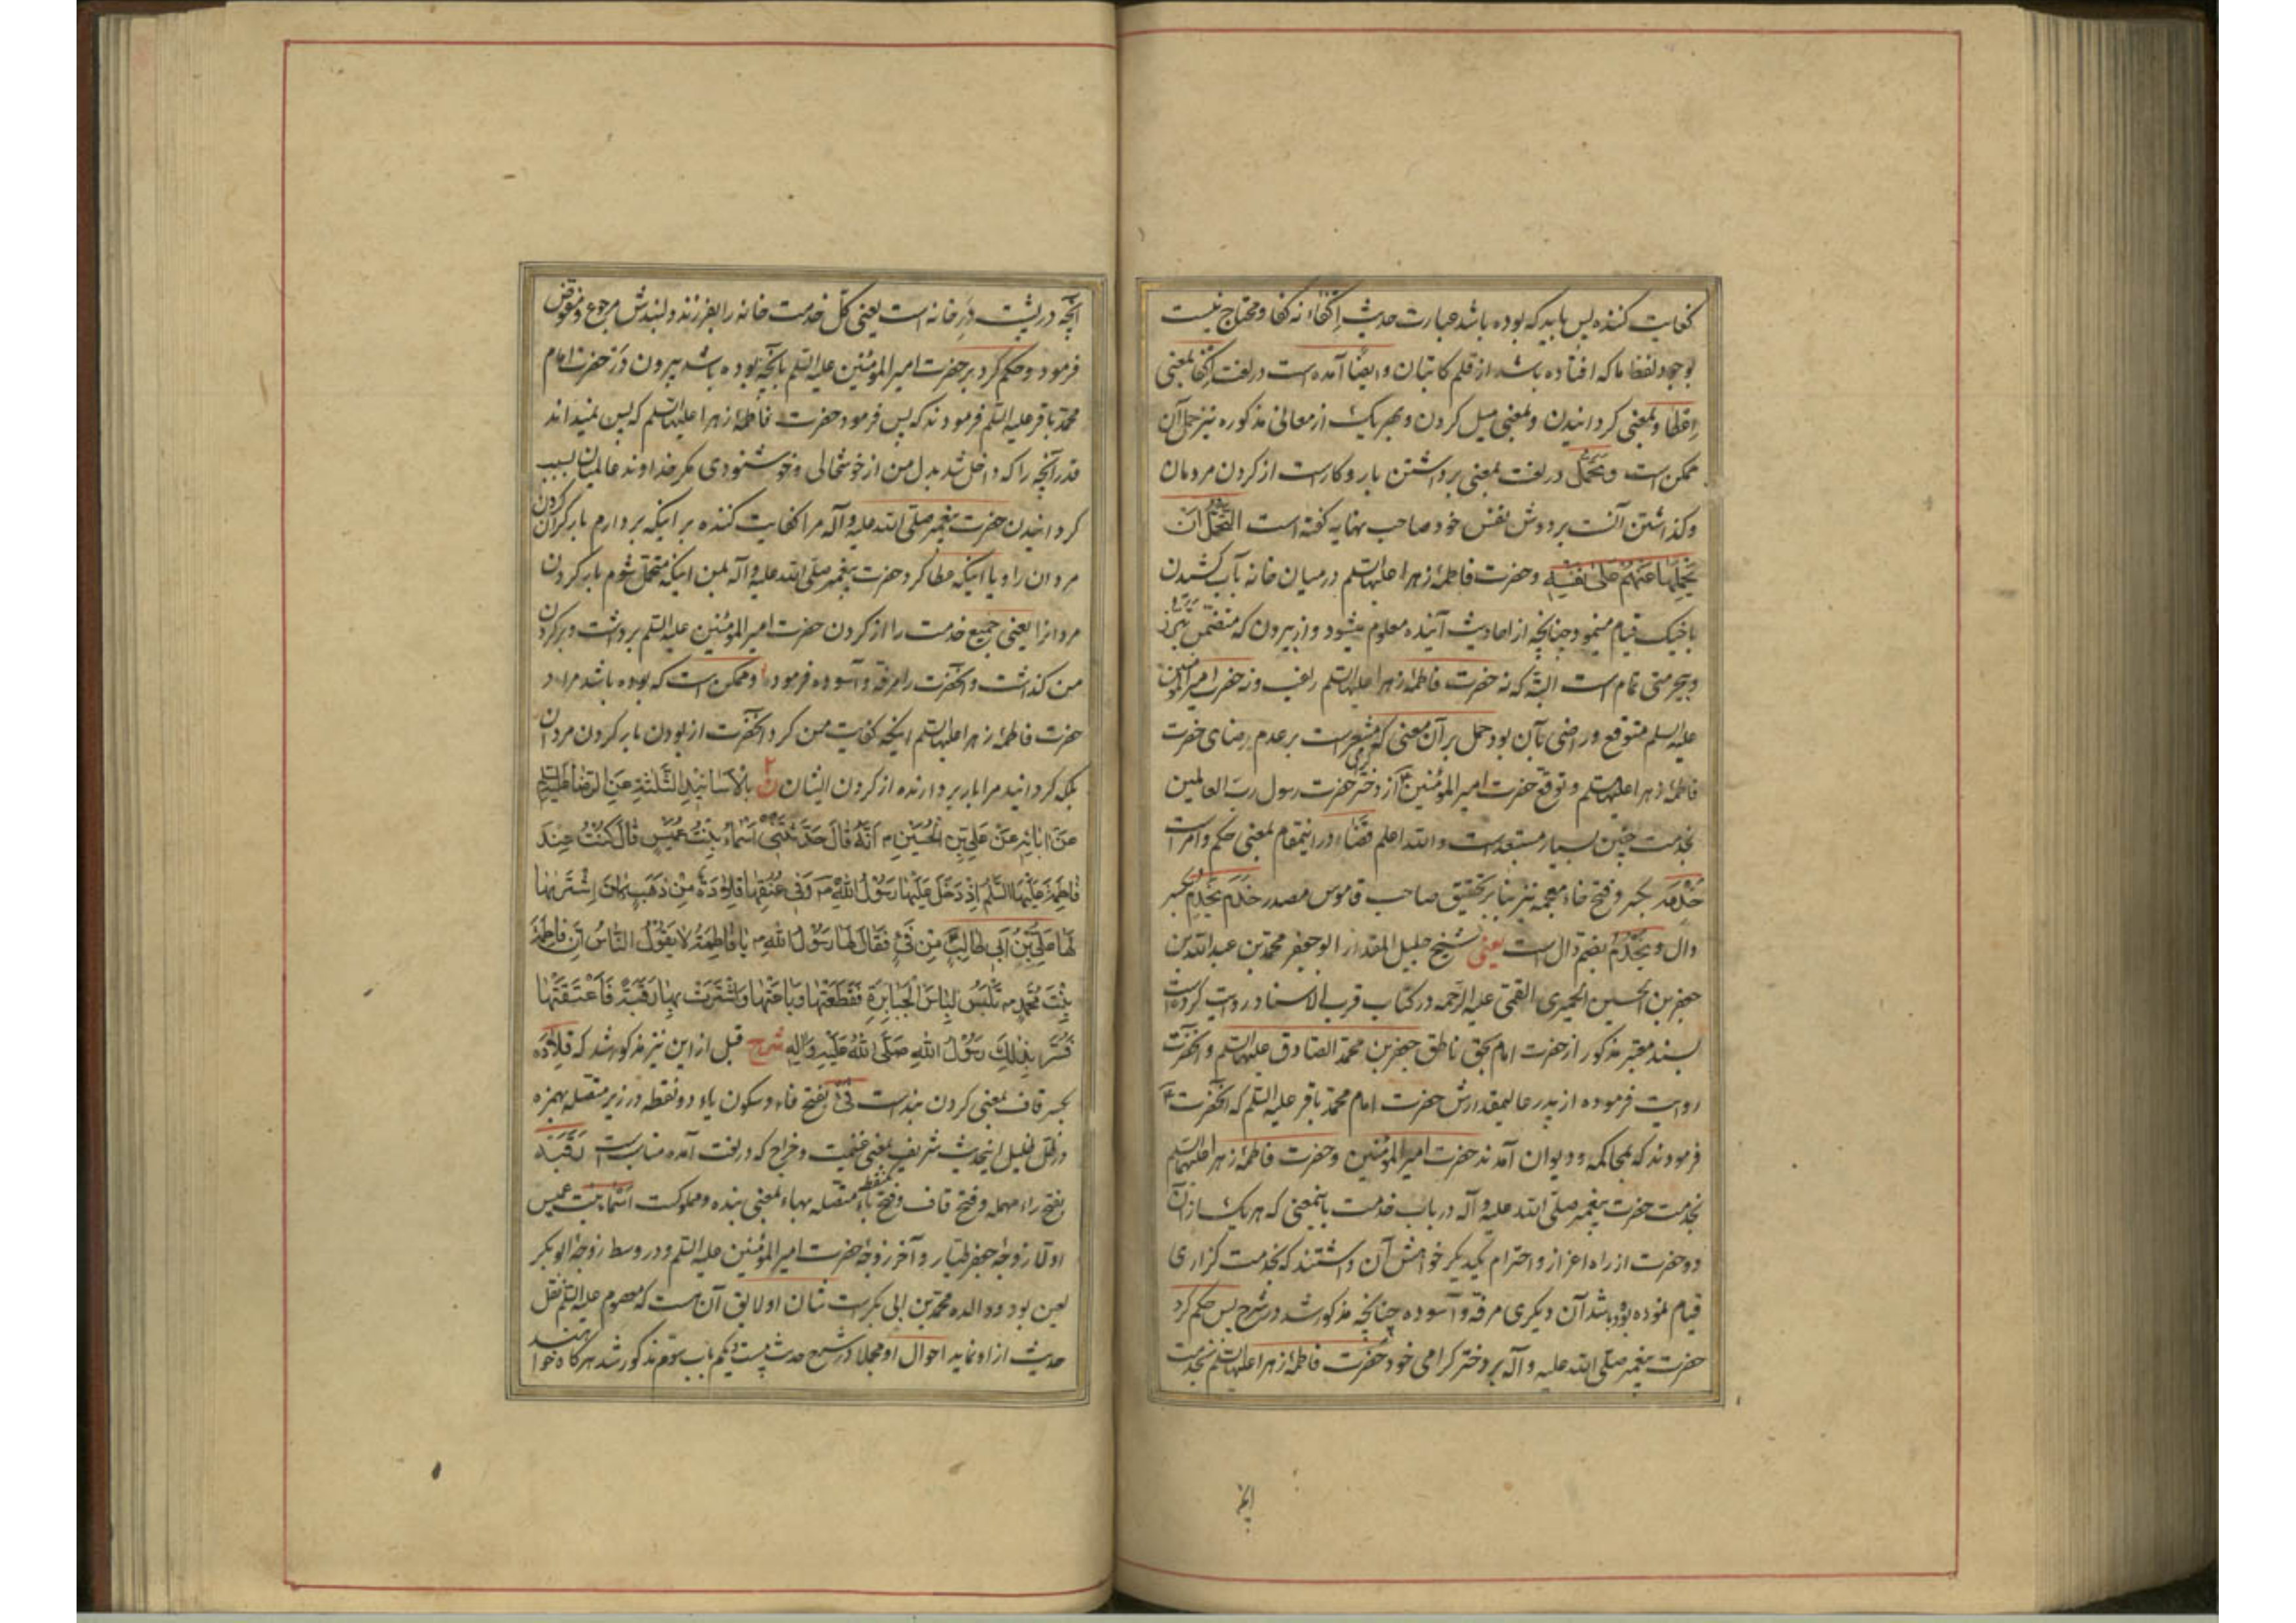 کفایت کننده پس باید که بوده باشد عبارت حدیث اکفاء نه کفا و محتاج نیست
بوجود لفظ ما که افتاده باشد از قلم کاتبان و ایضا آمده است در لغت اکفا بمعنی
اعطا و بمعنی گردانیدن و بمعنی میل کردن و بهر یک از معانی مذکوره نیز حمل آن
ممکن است و تحمّل در لغت بمعنی برداشتن بار و کار است از گردن مردمان
و گذاشتن آنست بر دوش نفس خود صاحب نهایه گفته است التحمّل ان
یحملها عنهم علی نفسه و حضرت فاطمهٔ زهرا علیها السلم در میان خانه بآب کشیدن
با خیک قیام مینمود چنانچه از احادیث آینده معلوم میشود و از بیرون که متضمن
و بیحرمتی تمام است البته که نه حضرت فاطمهٔ زهرا علیها السلم راغب و نه حضرت امیر المؤمنین
علیه السلم متوقع و راضی بآن بود حمل بر آن معنی که مشعر است بر عدم رضای حضرت
فاطمهٔ زهرا علیها السلم و توقع حضرت امیر المؤمنین از دختر حضرت رسول رب العالمین
بخدمت چنین بسیار مستبعد است و الله اعلم قضاء در اینمقام بمعنی حکم و امر است
خدمة بکسر و فتح خاء معجمه نیز بنا بر تحقیق صاحب قاموس مصدر خدم یخدم بکسر
دال و یخدم بضم دال است یعنی شیخ جلیل المقدار ابو جعفر محمد بن عبد الله بن
جعفر بن الحسین الحمیری القمی علیه الرحمه در کتاب قرب الاسناد روایت کرده است
بسند معتبر مذکور از حضرت امام بحق ناطق جعفر بن محمد الصادق علیهما السلم و آنحضرت
روایت فرموده از پدر عالیمقدارش حضرت امام محمد باقر علیه السلم که آنحضرت
فرمودند که بمحاکمه و دیوان آمدند حضرت امیر المؤمنین و حضرت فاطمهٔ زهرا علیهما السلم
بخدمت حضرت پیغمبر صلی الله علیه و آله در باب خدمت باینمعنی که هر یک از آن
دو حضرت از راه اعزاز و احترام یکدیگر خواهش آن داشتند که بخدمت گزاری
قیام نموده بوده باشد آن دیگری مرفه و آسوده چنانچه مذکور شد در شرح پس حکم کرد
حضرت پیغمبر صلی الله علیه و آله بر دختر گرامی خود حضرت فاطمهٔ زهرا علیها السلم بخدمت
آنچه در پشت در خانه است یعنی کل خدمت خانه را بفرزند دلبندش مرجوع و مفوض
فرمود و حکم کرد بر حضرت امیر المؤمنین علیه السلم بآنچه بوده باشد بیرون در حضرت امام
محمد باقر علیه السلم فرمودند که پس فرمود حضرت فاطمهٔ زهرا علیها السلم که پس نمیداند
قدر آنچه را که داخل شد بدل من از خوشحالی و خوشنودی مگر خداوند عالمیان بسبب
گردانیدن حضرت پیغمبر صلی الله علیه و آله مرا کفایت کننده بر اینکه بردارم بار گردن
مردان را و یا اینکه عطا کرد حضرت پیغمبر صلی الله علیه و آله بمن اینکه متحمل شوم بار گردن
مردانرا یعنی جمیع خدمت را از گردن حضرت امیر المؤمنین علیه السلم برداشت و بر گردن
من گذاشت و آنحضرت را مرفه و آسوده فرمود و ممکن است که بوده باشد مراد
حضرت فاطمهٔ زهرا علیها السلم اینکه کفایت من کرد آنحضرت از بودن بار گردن مردان
بلکه گردانید مرا بار بردارنده از گردن ایشان ن بالاسانید الثلثة عن الرضا علیه السلم
عن ابائه عن علی بن الحسین انه قال حدثتنی اسماء بنت عمیس قال کنت عند
فاطمة علیها السلم اذ دخل علیها رسول الله و فی عنقها قلادة من ذهب کان اشتریها
لها علی بن ابی طالب من فیء فقال لها رسول الله یا فاطمة لا یقول الناس ان فاطمة
بنت محمد تلبس لباس الجبابرة فقطعتها و باعتها و اشترت بها رقبة فاعتقتها
فسر بذلک رسول الله صلی الله علیه و اله شرح قبل از این نیز مذکور شد که قلاده
بکسر قاف بمعنی گردن بند است فیء بفتح فاء و سکون یاء دو نقطه در زیر متصله بهمزه
در نقل اینحدیث شریف بمعنی غنیمت و خراج که در لغت آمده مناسب است رقبة
بفتح راء مهمله و فتح قاف و فتح باء یک نقطه متصله بهاء بمعنی بنده و مملوکست اسماء بنت عمیس
اولا زوجهٔ جعفر طیار و آخر زوجهٔ حضرت امیر المؤمنین علیه السلم و در وسط زوجهٔ ابو بکر
لعین بود و والده محمد بن ابی بکر است شان او لایق آن هست که معصوم علیه السلم نقل
حدیث از او نماید احوال او مجملا در شرح حدیث بیست و یکم باب سوم مذکور شد هر که خواهد